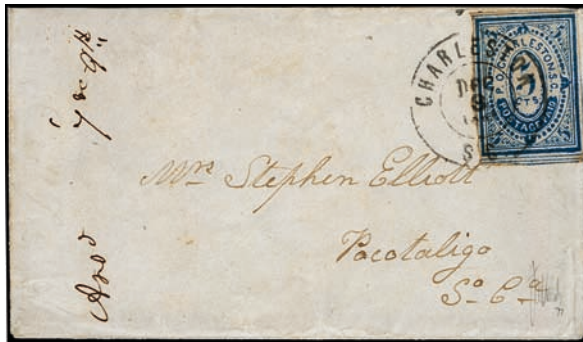 CHARLESTON
DEC
9
S.C.
P.O. CHARLESTON, S.C.
5
CTS.
POSTAGE PAID
Mrs Stephen Elliott
Pocotaligo
So Ca